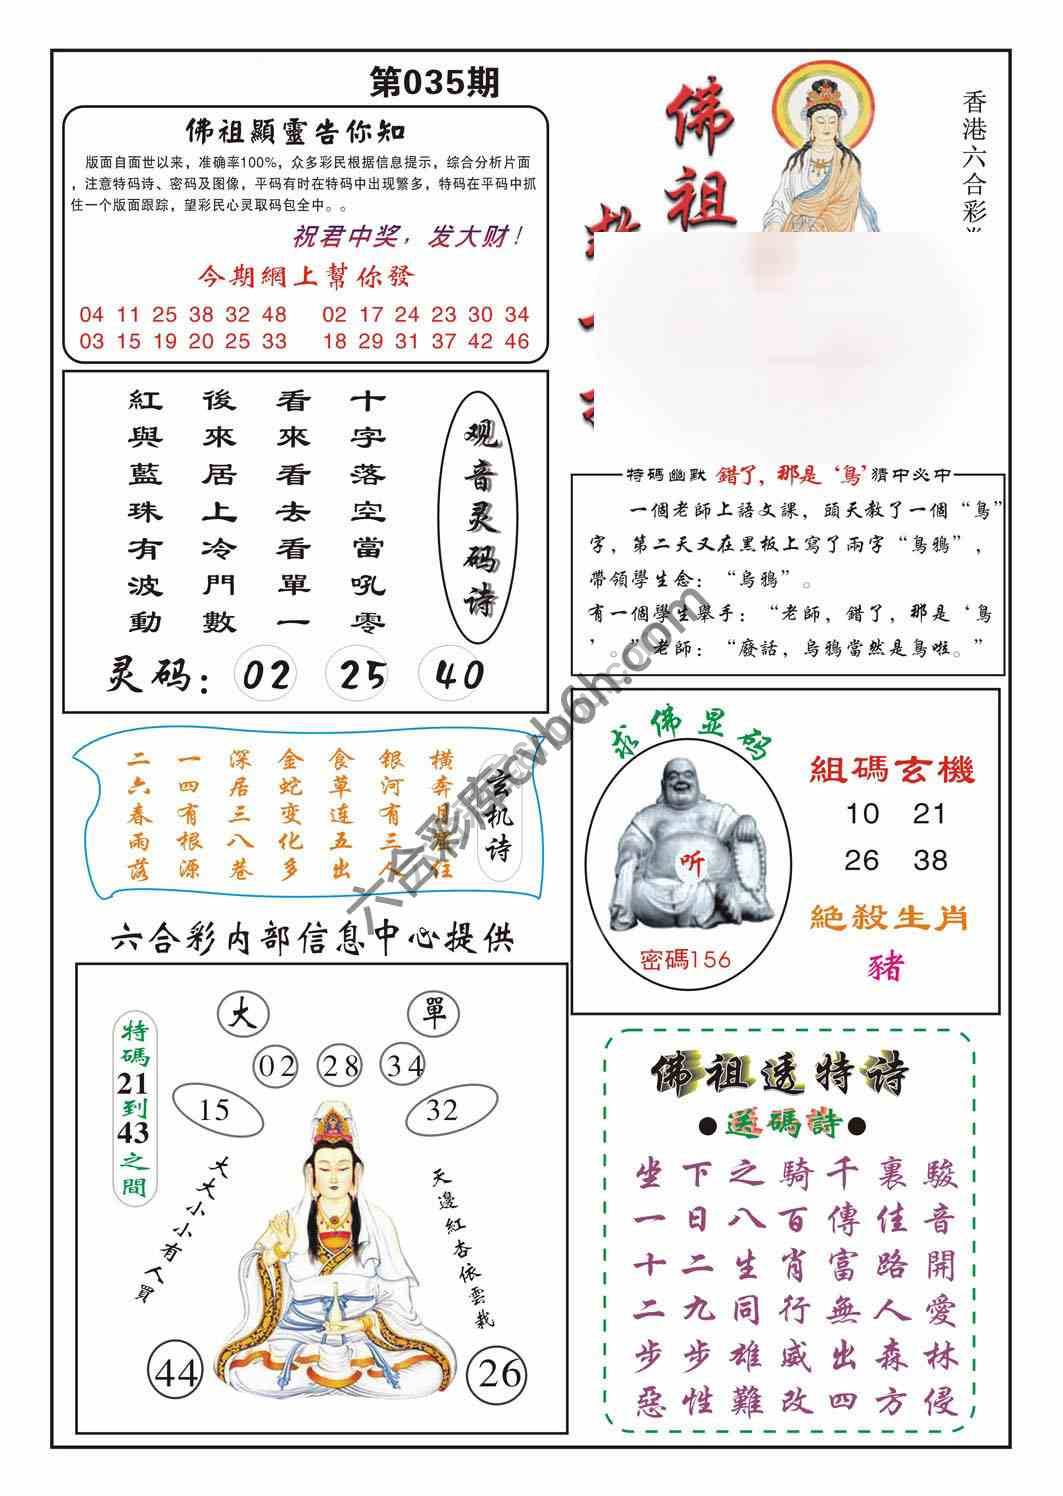 第035期
佛祖顯靈告你知
版面自面世以来，准确率100%，众多彩民根据信息提示，综合分析片面
，注意特码诗、密码及图像，平码有时在特码中出现繁多，特码在平码中抓
住一个版面跟踪，望彩民心灵取码包全中。。
祝君中奖，发大财！
今期網上幫你發
04 11 25 38 32 48 02 17 24 23 30 34
03 15 19 20 25 33 18 29 31 37 42 46
佛祖
香港六合彩
观音灵码诗
十字落空當吼零
看來看去看單一
後來居上冷門數
紅與藍珠有波動
灵码：02 25 40
特碼幽默 錯了，那是‘鳥’猜中必中
一個老師上語文課，頭天教了一個“鳥”
字，第二天又在黑板上寫了兩字“烏鴉”，
帶領學生念：“烏鴉”。
有一個學生舉手：“老師，錯了，那是‘鳥
’。”老師：“廢話，烏鴉當然是鳥啦。”
玄机诗
橫奔月 住
銀河有三人
食草连五出
金蛇变化多
深居三八巷
一四有根源
二六春雨落
求佛显码
听
密碼156
組碼玄機
10 21
26 38
絕殺生肖
豬
六合彩内部信息中心提供
特碼21到43之間
大 單
02 28 34
15 32
大大小小有人買
天邊紅杏依雲栽
44 26
佛祖透特诗
●送碼詩●
坐下之騎千裏駿
一日八百傳佳音
十二生肖富路開
二九同行無人愛
步步雄威出森林
惡性難改四方侵
六合彩库cvb6h.com